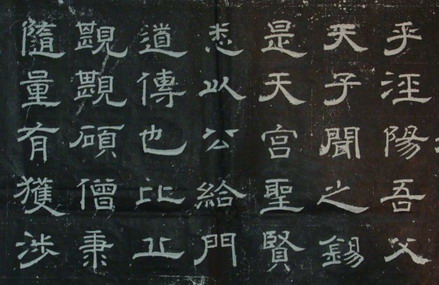 乎涇陽吾父
天子聞之錫
是天宮聖賢
悉以公給門
道傳也比丘
覬覬碩僧秉
隨量有獲涉